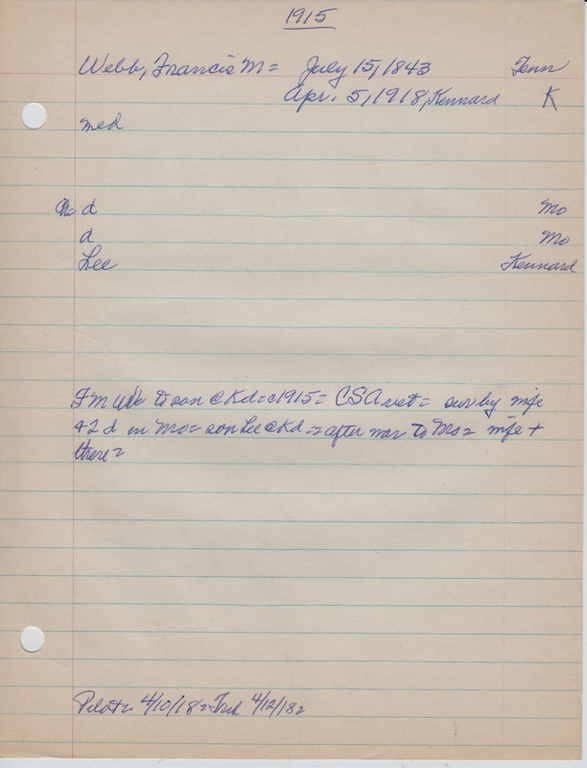 1915
Webb, Francis M= July 15, 1843 Tenn
Apr. 5, 1918, Kennard K
med
Ch= d Mo
d Mo
Lee Kennard
F M Web to son @ Kd= c1915= CSA vet= surv by wife
+ 2 d in Mo= son Lee @ Kd = after war to Mo= wife +
there=
Pilot= 4/10/18= Trib 4/12/18=